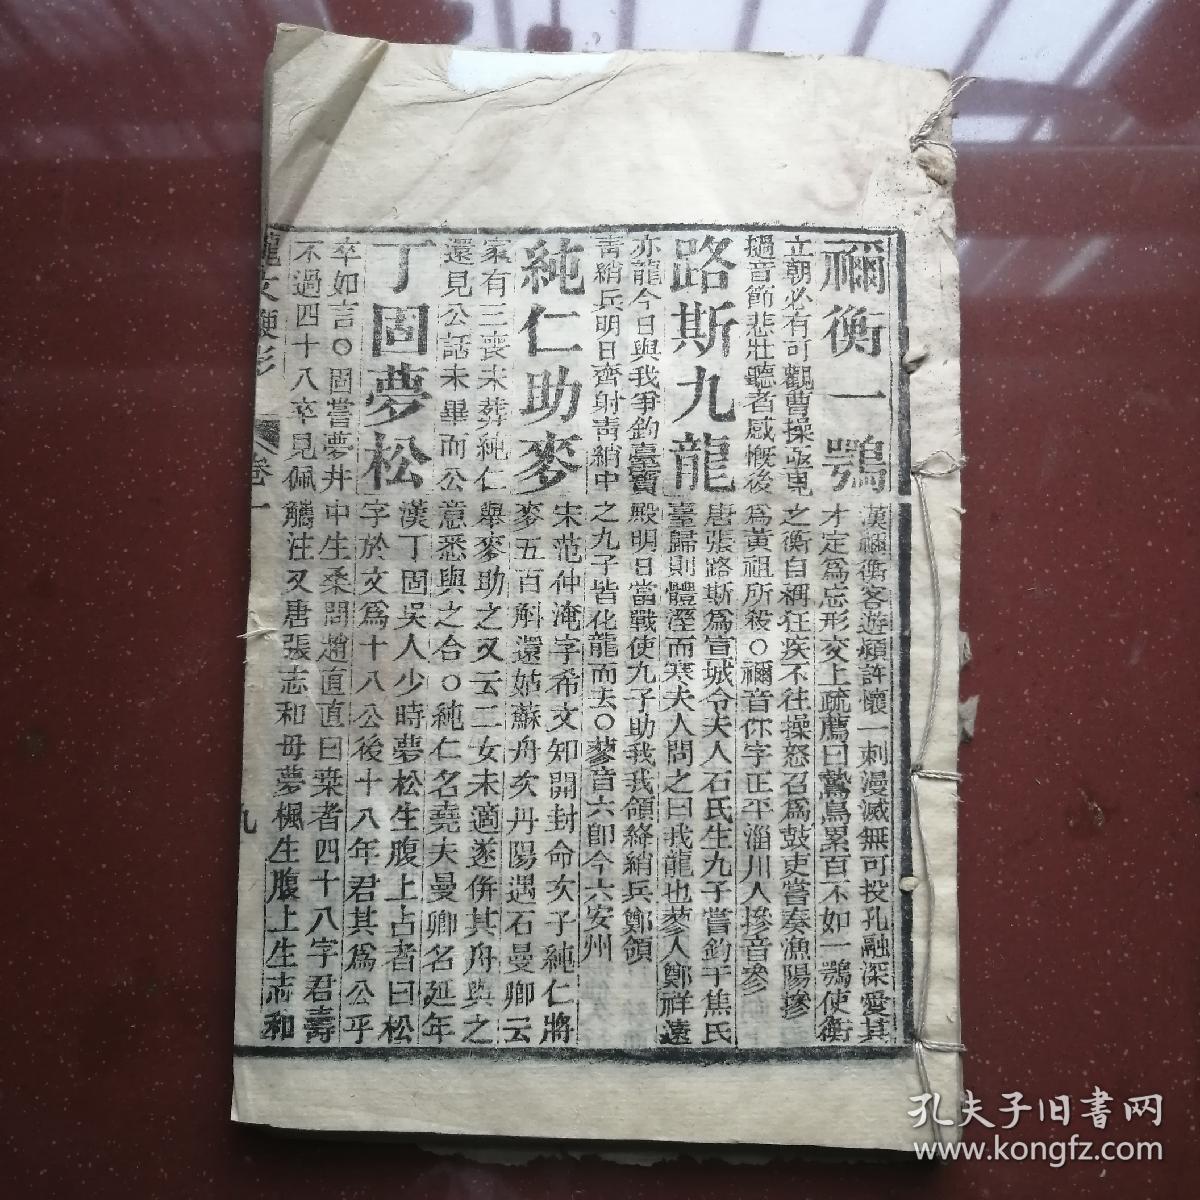 禰衡一鶚
漢禰衡客遊願許懷一刺漫滅無可投孔融深愛其
才定爲忘形交上疏薦曰鷙鳥累百不如一鶚使衡
立朝必有可觀曹操
之衡自稱狂疾不往操怒召爲鼓吏嘗奏漁陽摻
撾音節悲壯聽者感慨後
爲黃祖所殺○禰音你字正平淄川人摻音參
路斯九龍
唐張路斯爲宣城令夫人石氏生九子嘗釣于焦氏
臺歸則體溼而寒夫人問之曰我龍也蓼人鄭祥遠
亦龍今日與我爭釣臺寶
殿明日當戰使九子助我我領絳綃兵鄭領
靑綃兵明日齊射靑綃中
之九子皆化龍而去○蓼音六卽今六安州
純仁助麥
宋范仲淹字希文知開封命次子純仁將
麥五百斛還姑蘇舟次丹陽遇石曼卿云
家有三喪未葬純仁
舉麥助之又云二女未適遂併其舟與之
還見公話未畢而公
意悉與之合○純仁名堯夫曼卿名延年
丁固夢松
漢丁固吳人少時夢松生腹上占者曰松
字於文爲十八公後十八年君其爲公乎
卒如言○固嘗夢井
中生桑問趙直直曰桒者四十八字君壽
不過四十八卒見佩
觿注又唐張志和母夢楓生腹上生志和
龍文鞭影
卷一
九
孔夫子旧書网
www.kongfz.com